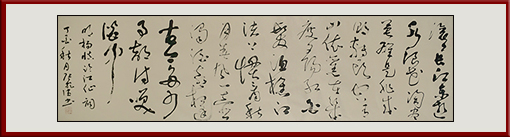 滚滚长江东逝
水浪花淘尽
英雄是非成
败转头空青
山依旧在几
度夕阳红白
发渔樵江
渚上惯看秋
月春风一壶
浊酒喜相逢
古今多少
事都付笑
谈中
明杨慎临江仙词